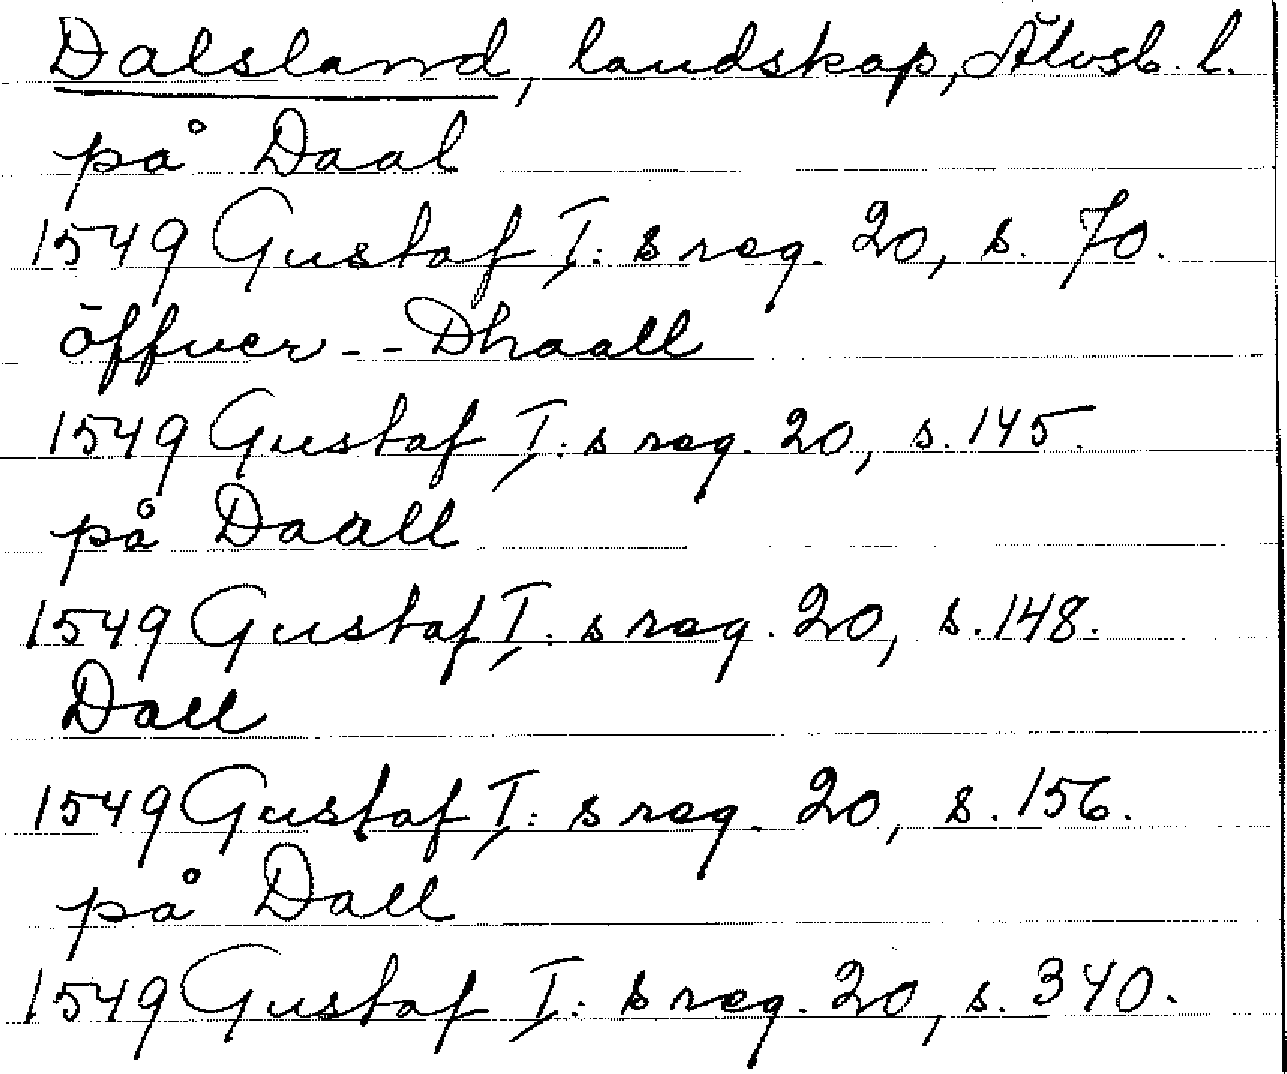 Dalsland, landskap, Älvsb. l.
på Daal
1549 Gustaf I:s reg. 20, s. 70.
öffuer -- Dhaall
1549 Gustaf I:s reg. 20, s. 145.
på Daall
1549 Gustaf I:s reg. 20, s. 148.
Dall
1549 Gustaf I:s reg. 20, s. 156.
på Dall
1549 Gustaf I:s reg. 20, s. 340.